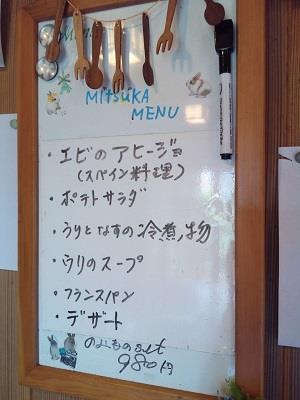 MitsukA
MENU
・エビのアヒージョ
(スペイン料理)
・ポテトサラダ
・うりとなすの冷煮物
・うりのスープ
・フランスパン
・デザート
980円